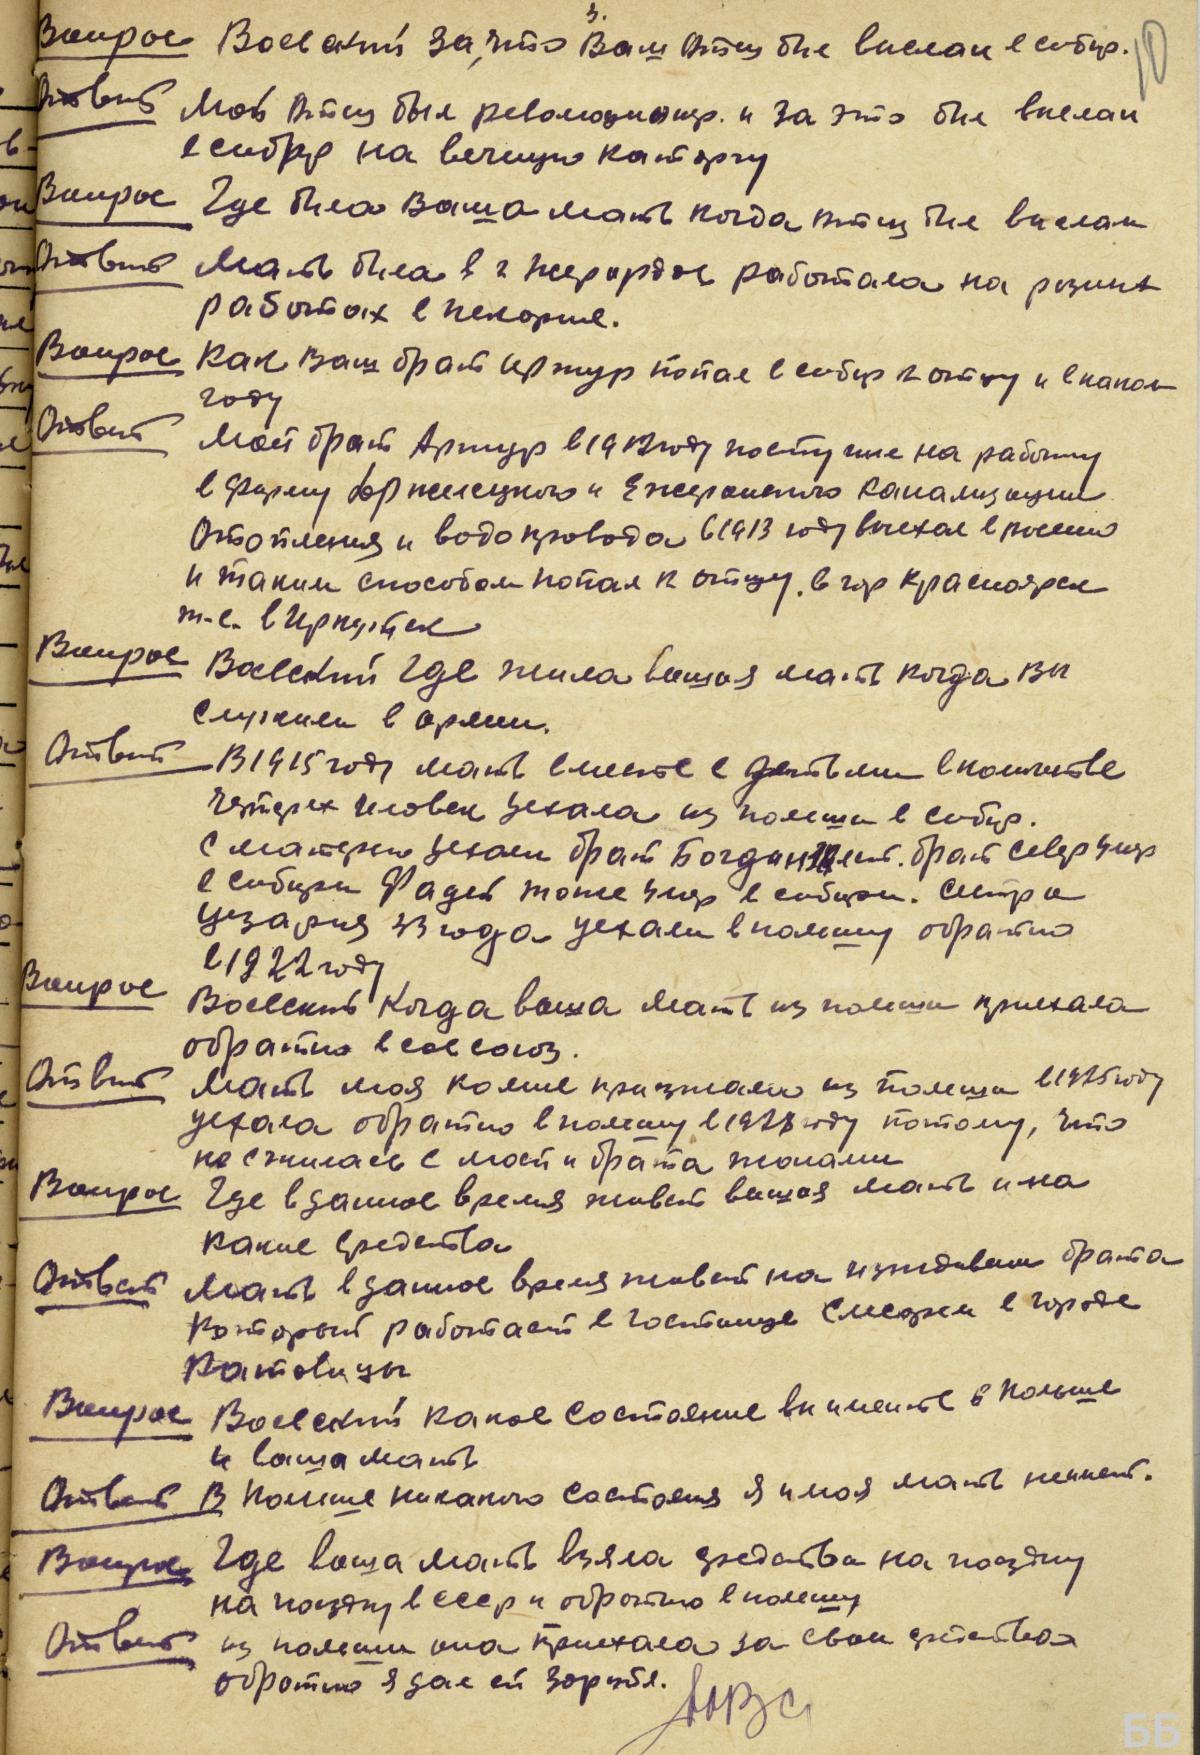 3.
10
Вопрос Воевский за, что Ваш Отец был выслан в сибир.
Ответ Мой Отец был революционер. и за это был выслан
в сибирь на вечную каторгу
Вопрос Где была Ваша мать когда отец был выслан
Ответ Мать была в г работала на разных
работах в
Вопрос Как Ваш брат Артур попал в сибир к отцу и в каком
году
Ответ Мой брат Артур в 1912 году поступил на работу
в фирму и канализации
Отопления и водопровода в 1913 году выехал в россию
и таким способом попал к отцу. в гор Красноярск
т.е. в Иркутск
Вопрос Воевский Где жила вашая мать когда Вы
служили в армии.
Ответ В 1915 году мать вместе с детьями в количестве
четырех человек уехала из полши в сибир.
с матерью уехали брат Богдан лет. брат север умер
в сибири Фадей тоже умер в сибири. сестра
цезария 33 года уехали в полшу обратно
в 1922 году
Вопрос Воевский Когда ваша мать из полши приехала
обратно в сов союз.
Ответ Мать моя комне приезжала из полши в 1925 году
уехала обратно в полшу в 1928 году потому, что
не сжилась с моей и брата женами
Вопрос Где в даное время живет вашая мать и на
какие средства
Ответ Мать в даное время живет на иждивени брата
который работает в гостинице в городе
Катовицы
Вопрос Воевский какое состояние вы имеите в Польше
и ваша мать
Ответ В Полше никакого состояния я и моя мать неимеет.
Вопрос Где ваша мать взяла средства на поездку
на поездку в ссср и обратно в полшу
Ответ из полши она приехала за свои средства
обратно я дал ей 30 рубл.
ББ